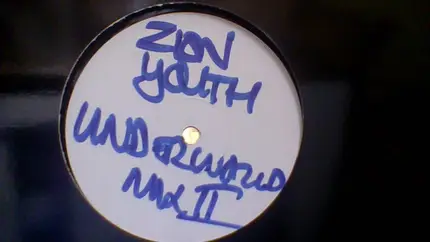 ZION
YOUTH
UNDERWORLD
MIX II